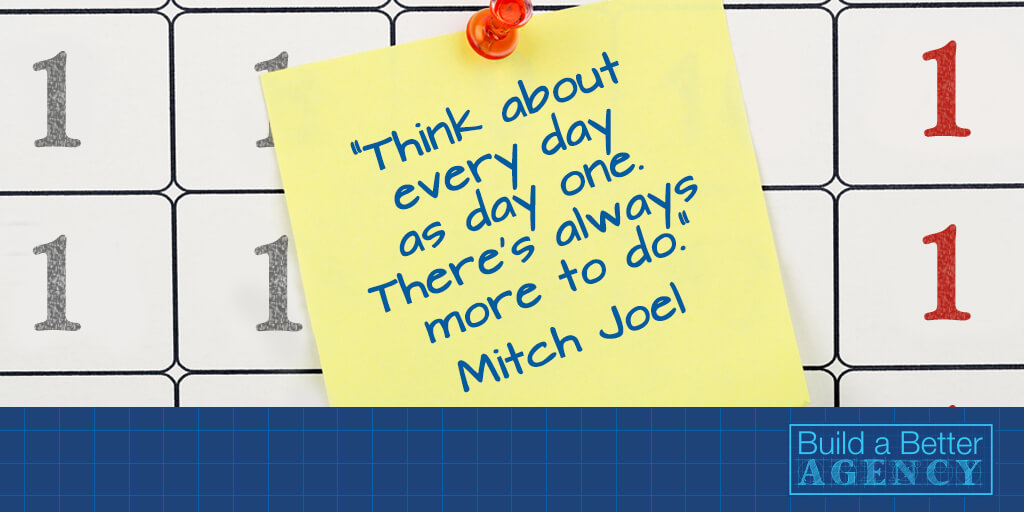 1 1 1
"Think about
every day
as day one.
There's always
more to do."
Mitch Joel
1 1 1
Build a Better
AGENCY